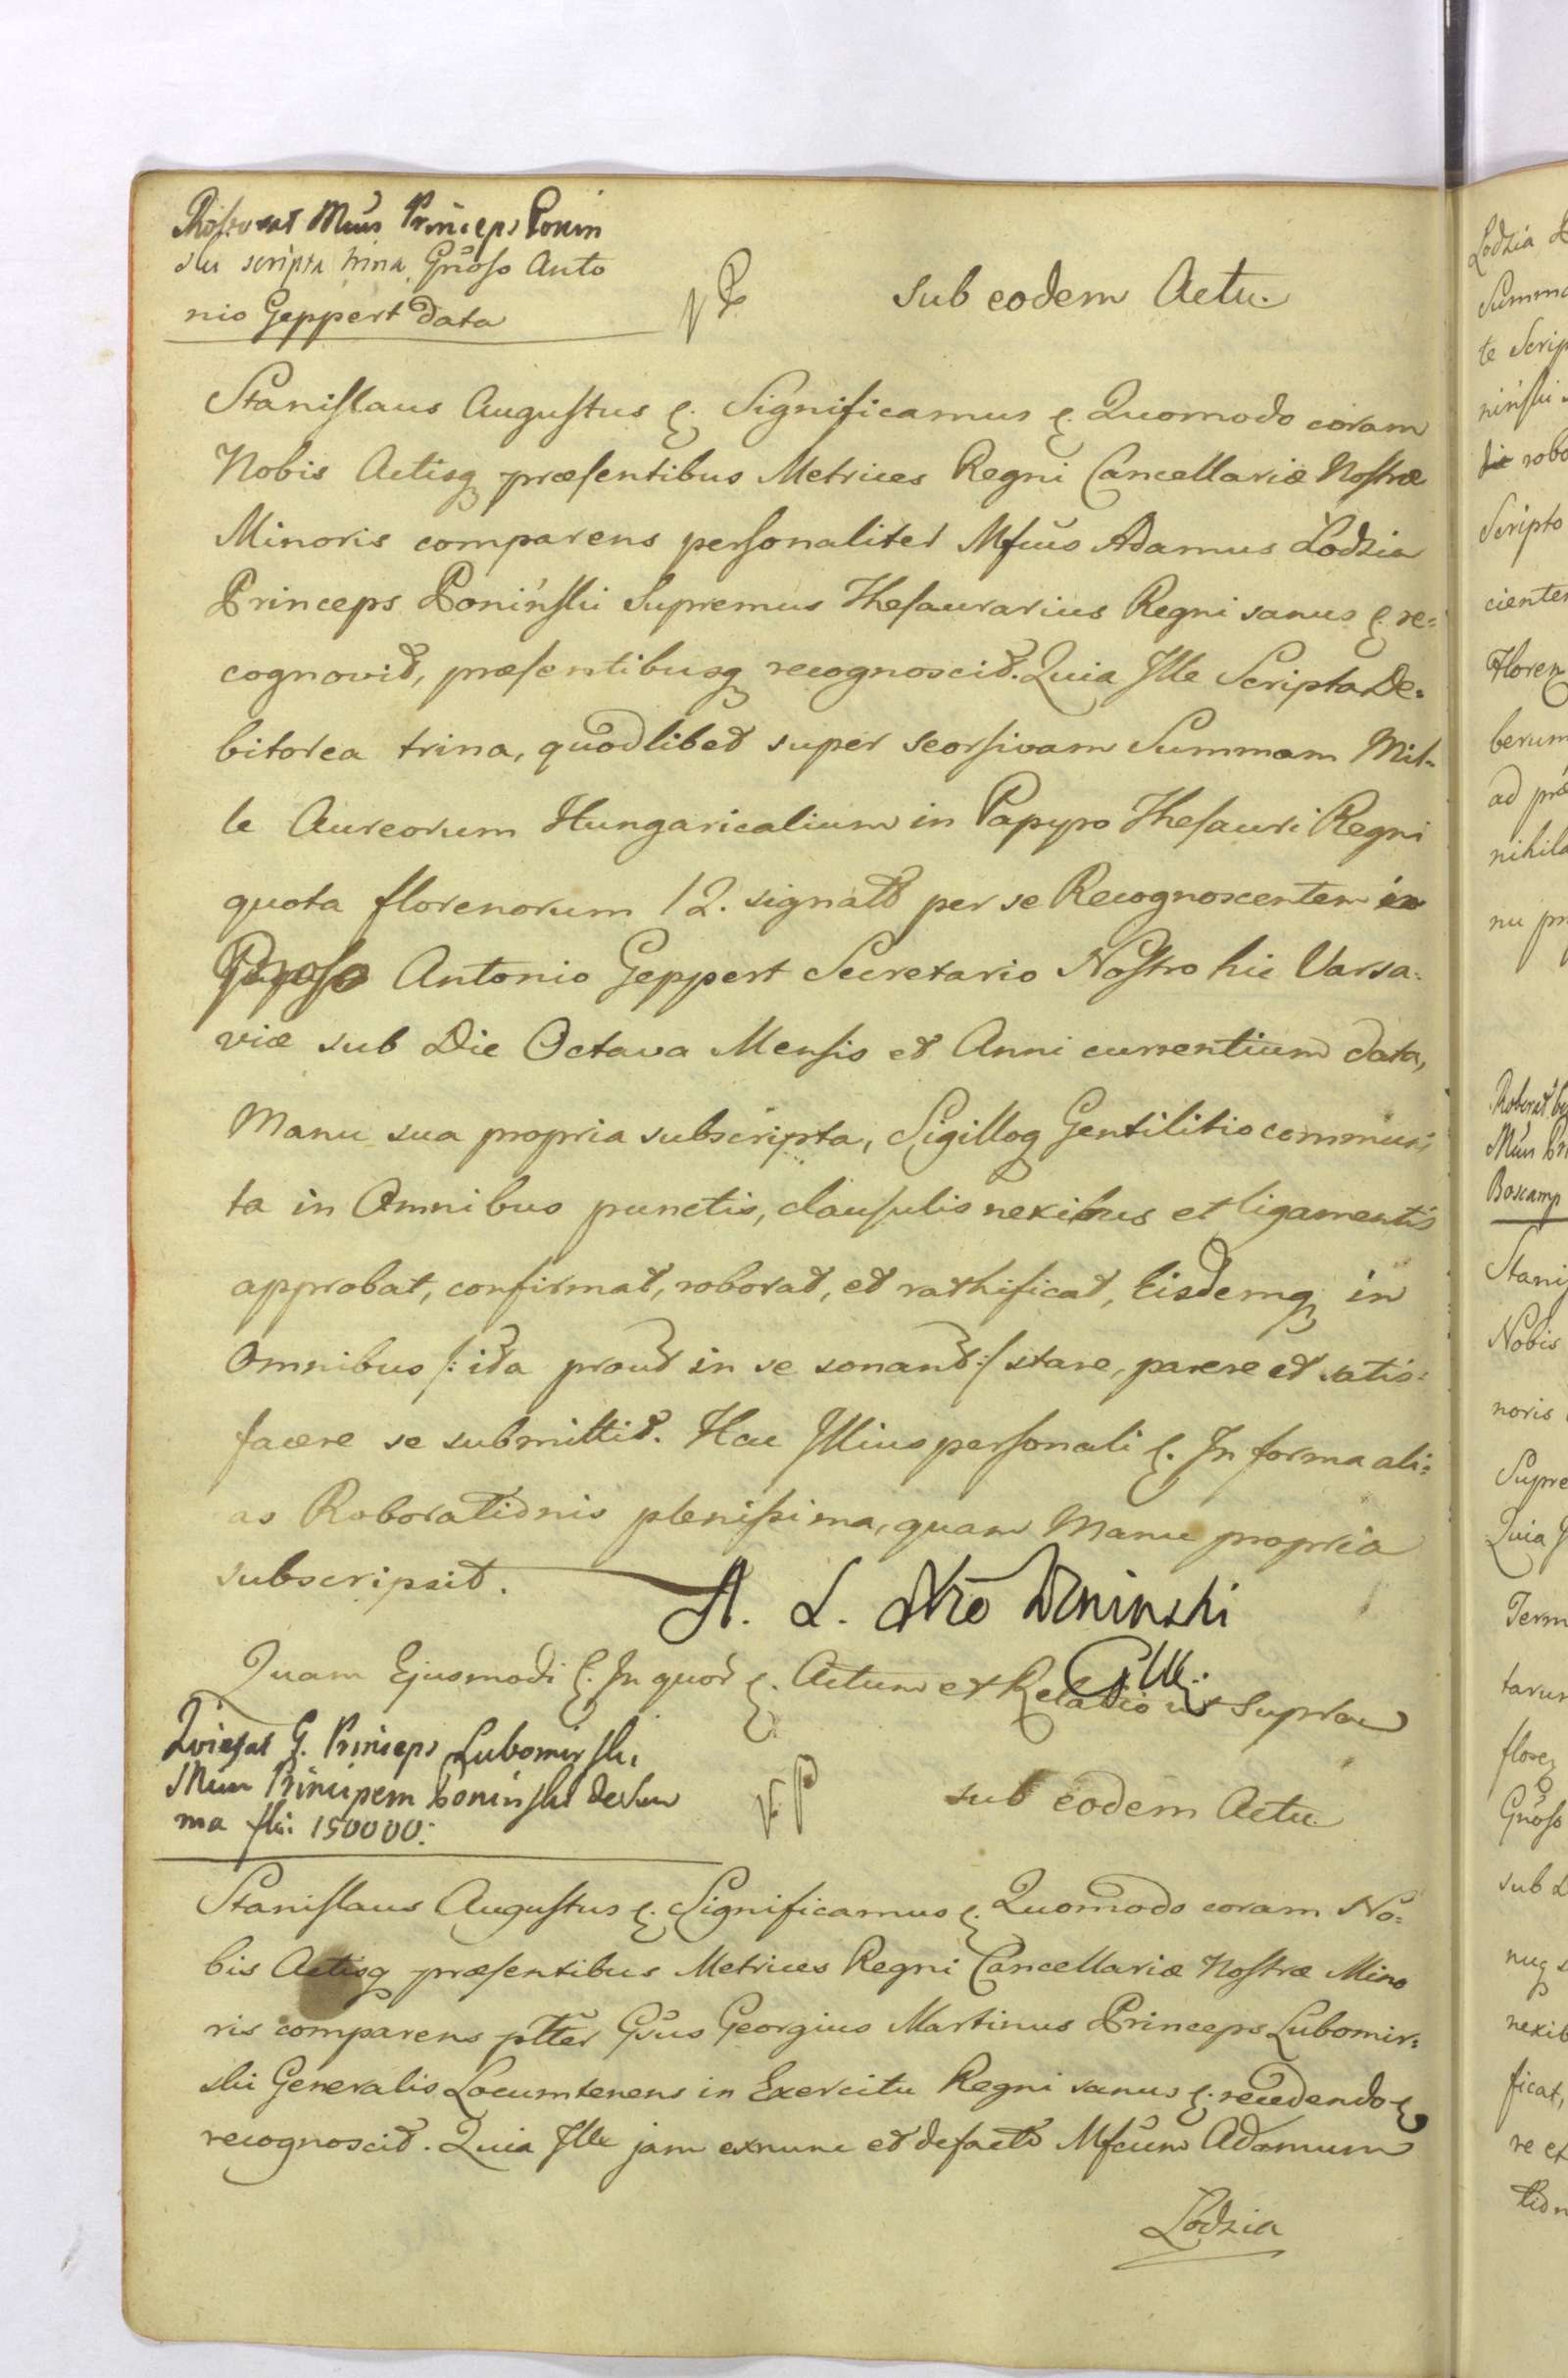 Roborat Mcus Princeps Ponin
ski scripta trina Gnoso Anto
nio Geppert data
Sub eodem Actu.
Stanislaus Augustus &. Significamus &. Quomodo coram
Nobis Actisq præsentibus Metrices Regni Cancellariæ Nostræ
Minoris comparens personaliter Mfcus Adamus Lodzia
Princeps Poniński Supremus Thesaurarius Regni sanus &. re=
cognovit, præsentibusq recognoscit. Quia Ille Scripta De=
bitorea trina, quodlibet super seorsivam Summam Mil=
le Aureorum Hungaricalium in Papyro Thesauri Regni
quota florenorum 12. signato per se Recognoscentem
Gnoso Antonio Geppert Secretario Nostro hic Varsa=
viæ sub Die Octava Mensis et Anni currentium data,
Manu sua propria subscripta, Sigilloq Gentilitio communi=
ta in Omnibus punctis, clausulis nexibus et ligamentis
approbat, confirmat, roborat, et rathificat, Eisdemq in
Omnibus /: ita prout in se sonant :/ stare, parere et satis=
facere se submittit. Hac Illius personali &. In forma ali=
as Roborationis plenissima, quam Manu propria
subscripsit.
A. L. Poninski
Quam Ejusmodi &. In quor &. Actum et Relatio ut Supra
Quietat G. Princeps Lubomirski
Mcum Principem Poninski de Sum
ma fl: 150000:
sub eodem Actu.
Stanislaus Augustus &. Significamus &. Quomodo coram No=
bis Actisq præsentibus Metrices Regni Cancellariæ Nostræ Mino
ris comparens plter Gsus Georgius Martinus Princeps Lubomir=
ski Generalis Locumtenens in Exercitu Regni sanus &. recedendo &
recognoscit. Quia Ille jam exnunc et defacto Mfcum Adamum
Lodzia